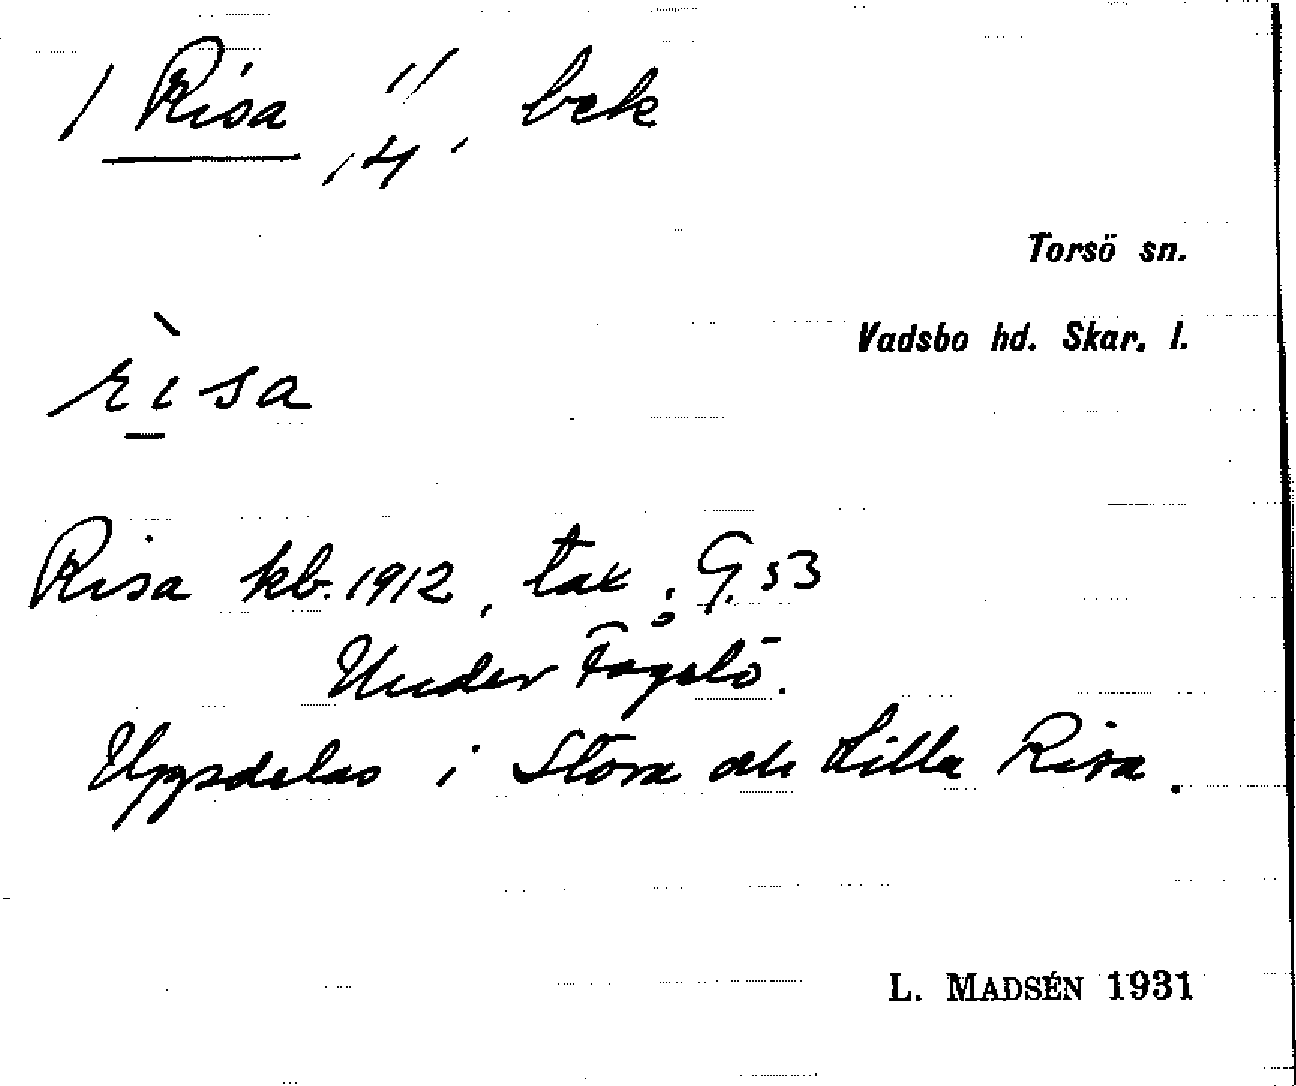 / Risa // bek
, 4 '
Torsö sn.
Vadsbo hd. Skar. l.
rìsa
Risa kb. 1912, tax: G. 53
Under Fågelö.
Uppdelas i Stora och Lilla Risa.
L. MADSÉN 1931